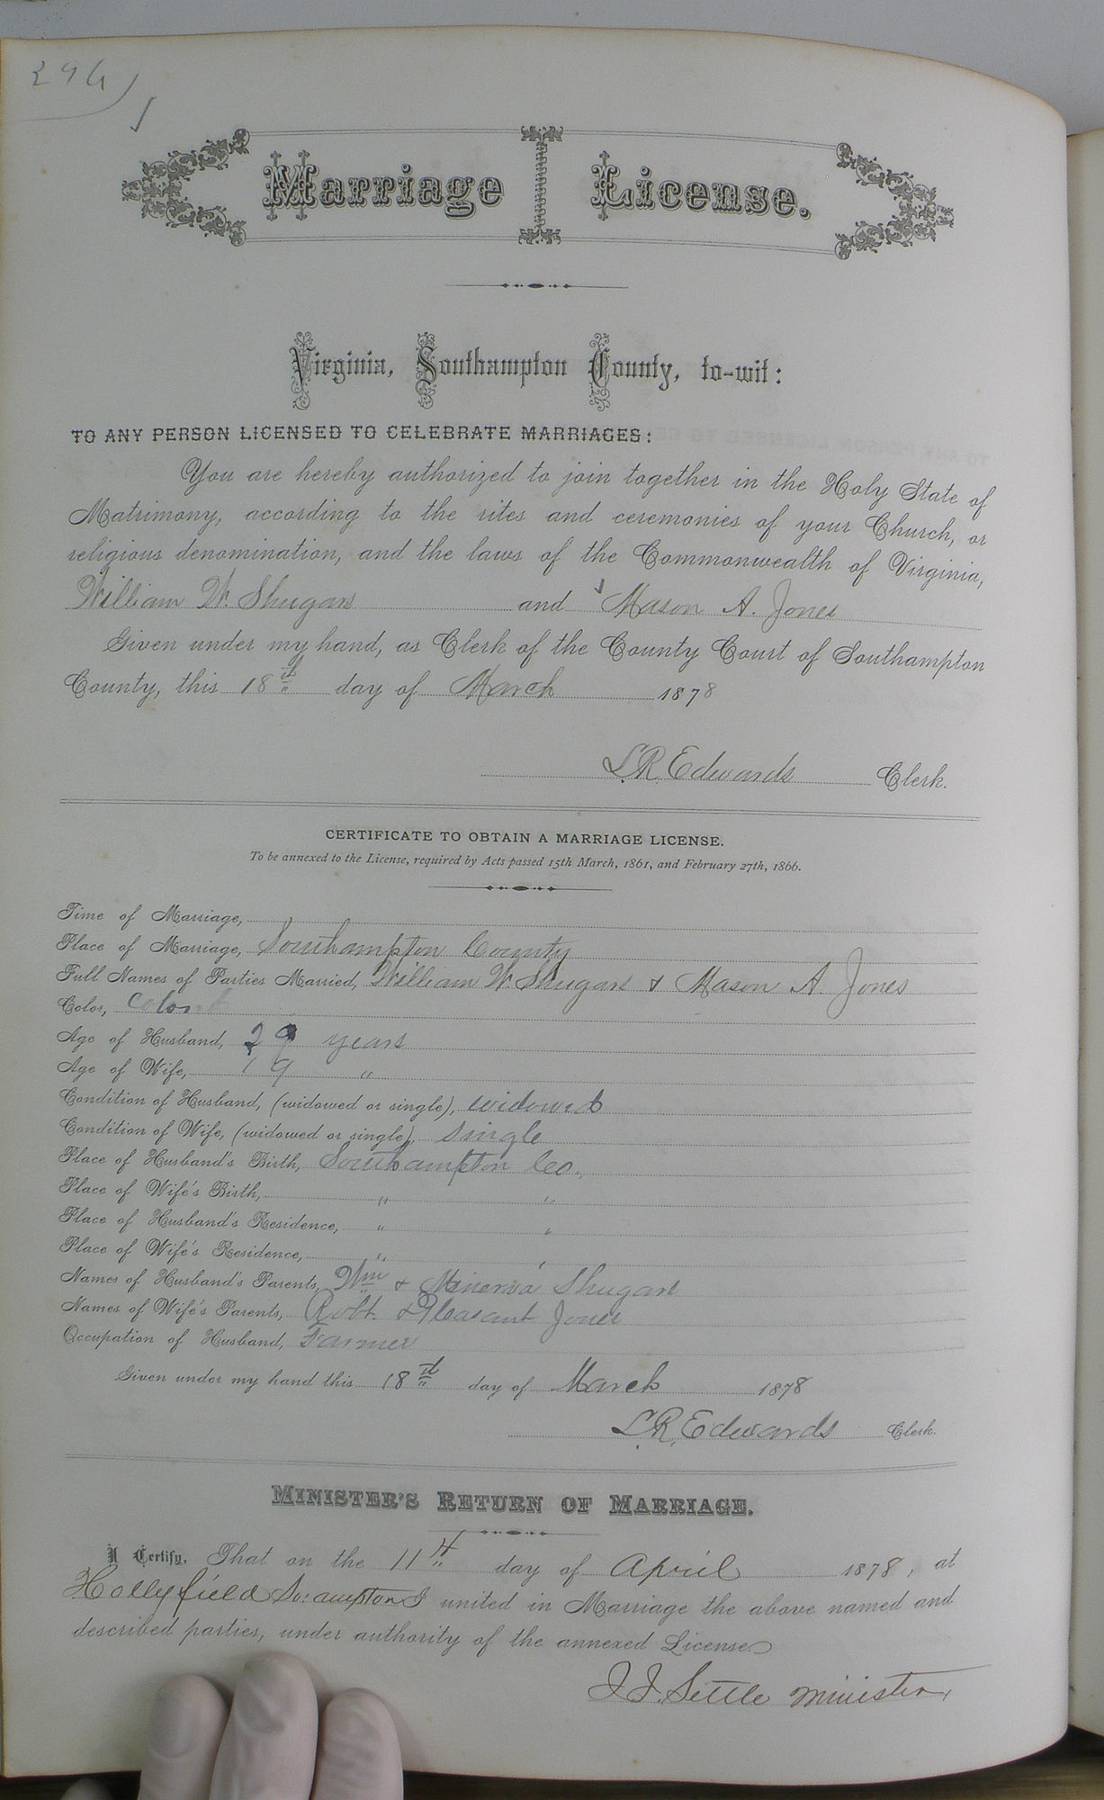 294
Marriage License.
Virginia, Southampton County, to-wit:
TO ANY PERSON LICENSED TO CELEBRATE MARRIAGES:
You are hereby authorized to join together in the Holy State of
Matrimony, according to the rites and ceremonies of your Church, or
religious denomination, and the laws of the Commonwealth of Virginia,
William W. Shugars and Mason A. Jones
Given under my hand, as Clerk of the County Court of Southampton
County, this 18th day of March 1878
L.R. Edwards Clerk.
CERTIFICATE TO OBTAIN A MARRIAGE LICENSE.
To be annexed to the License, required by Acts passed 15th March, 1861, and February 27th, 1866.
Time of Marriage,
Place of Marriage, Southampton County
Full Names of Parties Married, William W. Shugars & Mason A. Jones
Color,
Age of Husband, 29 years
Age of Wife, 19 "
Condition of Husband, (widowed or single), widowed
Condition of Wife, (widowed or single), single
Place of Husband's Birth, Southampton Co.,
Place of Wife's Birth, " "
Place of Husband's Residence, " "
Place of Wife's Residence, " "
Names of Husband's Parents, Wm & Minerva Shugars
Names of Wife's Parents, Robt. & Pleasant Jones
Occupation of Husband, Farmer
Given under my hand this 18th day of March 1878
L.R. Edwards Clerk.
MINISTER'S RETURN OF MARRIAGE.
I Certify, That on the 11th day of April 1878, at
Hollyfield So:ampton I united in Marriage the above named and
described parties, under authority of the annexed License
J.J. Settle minister,